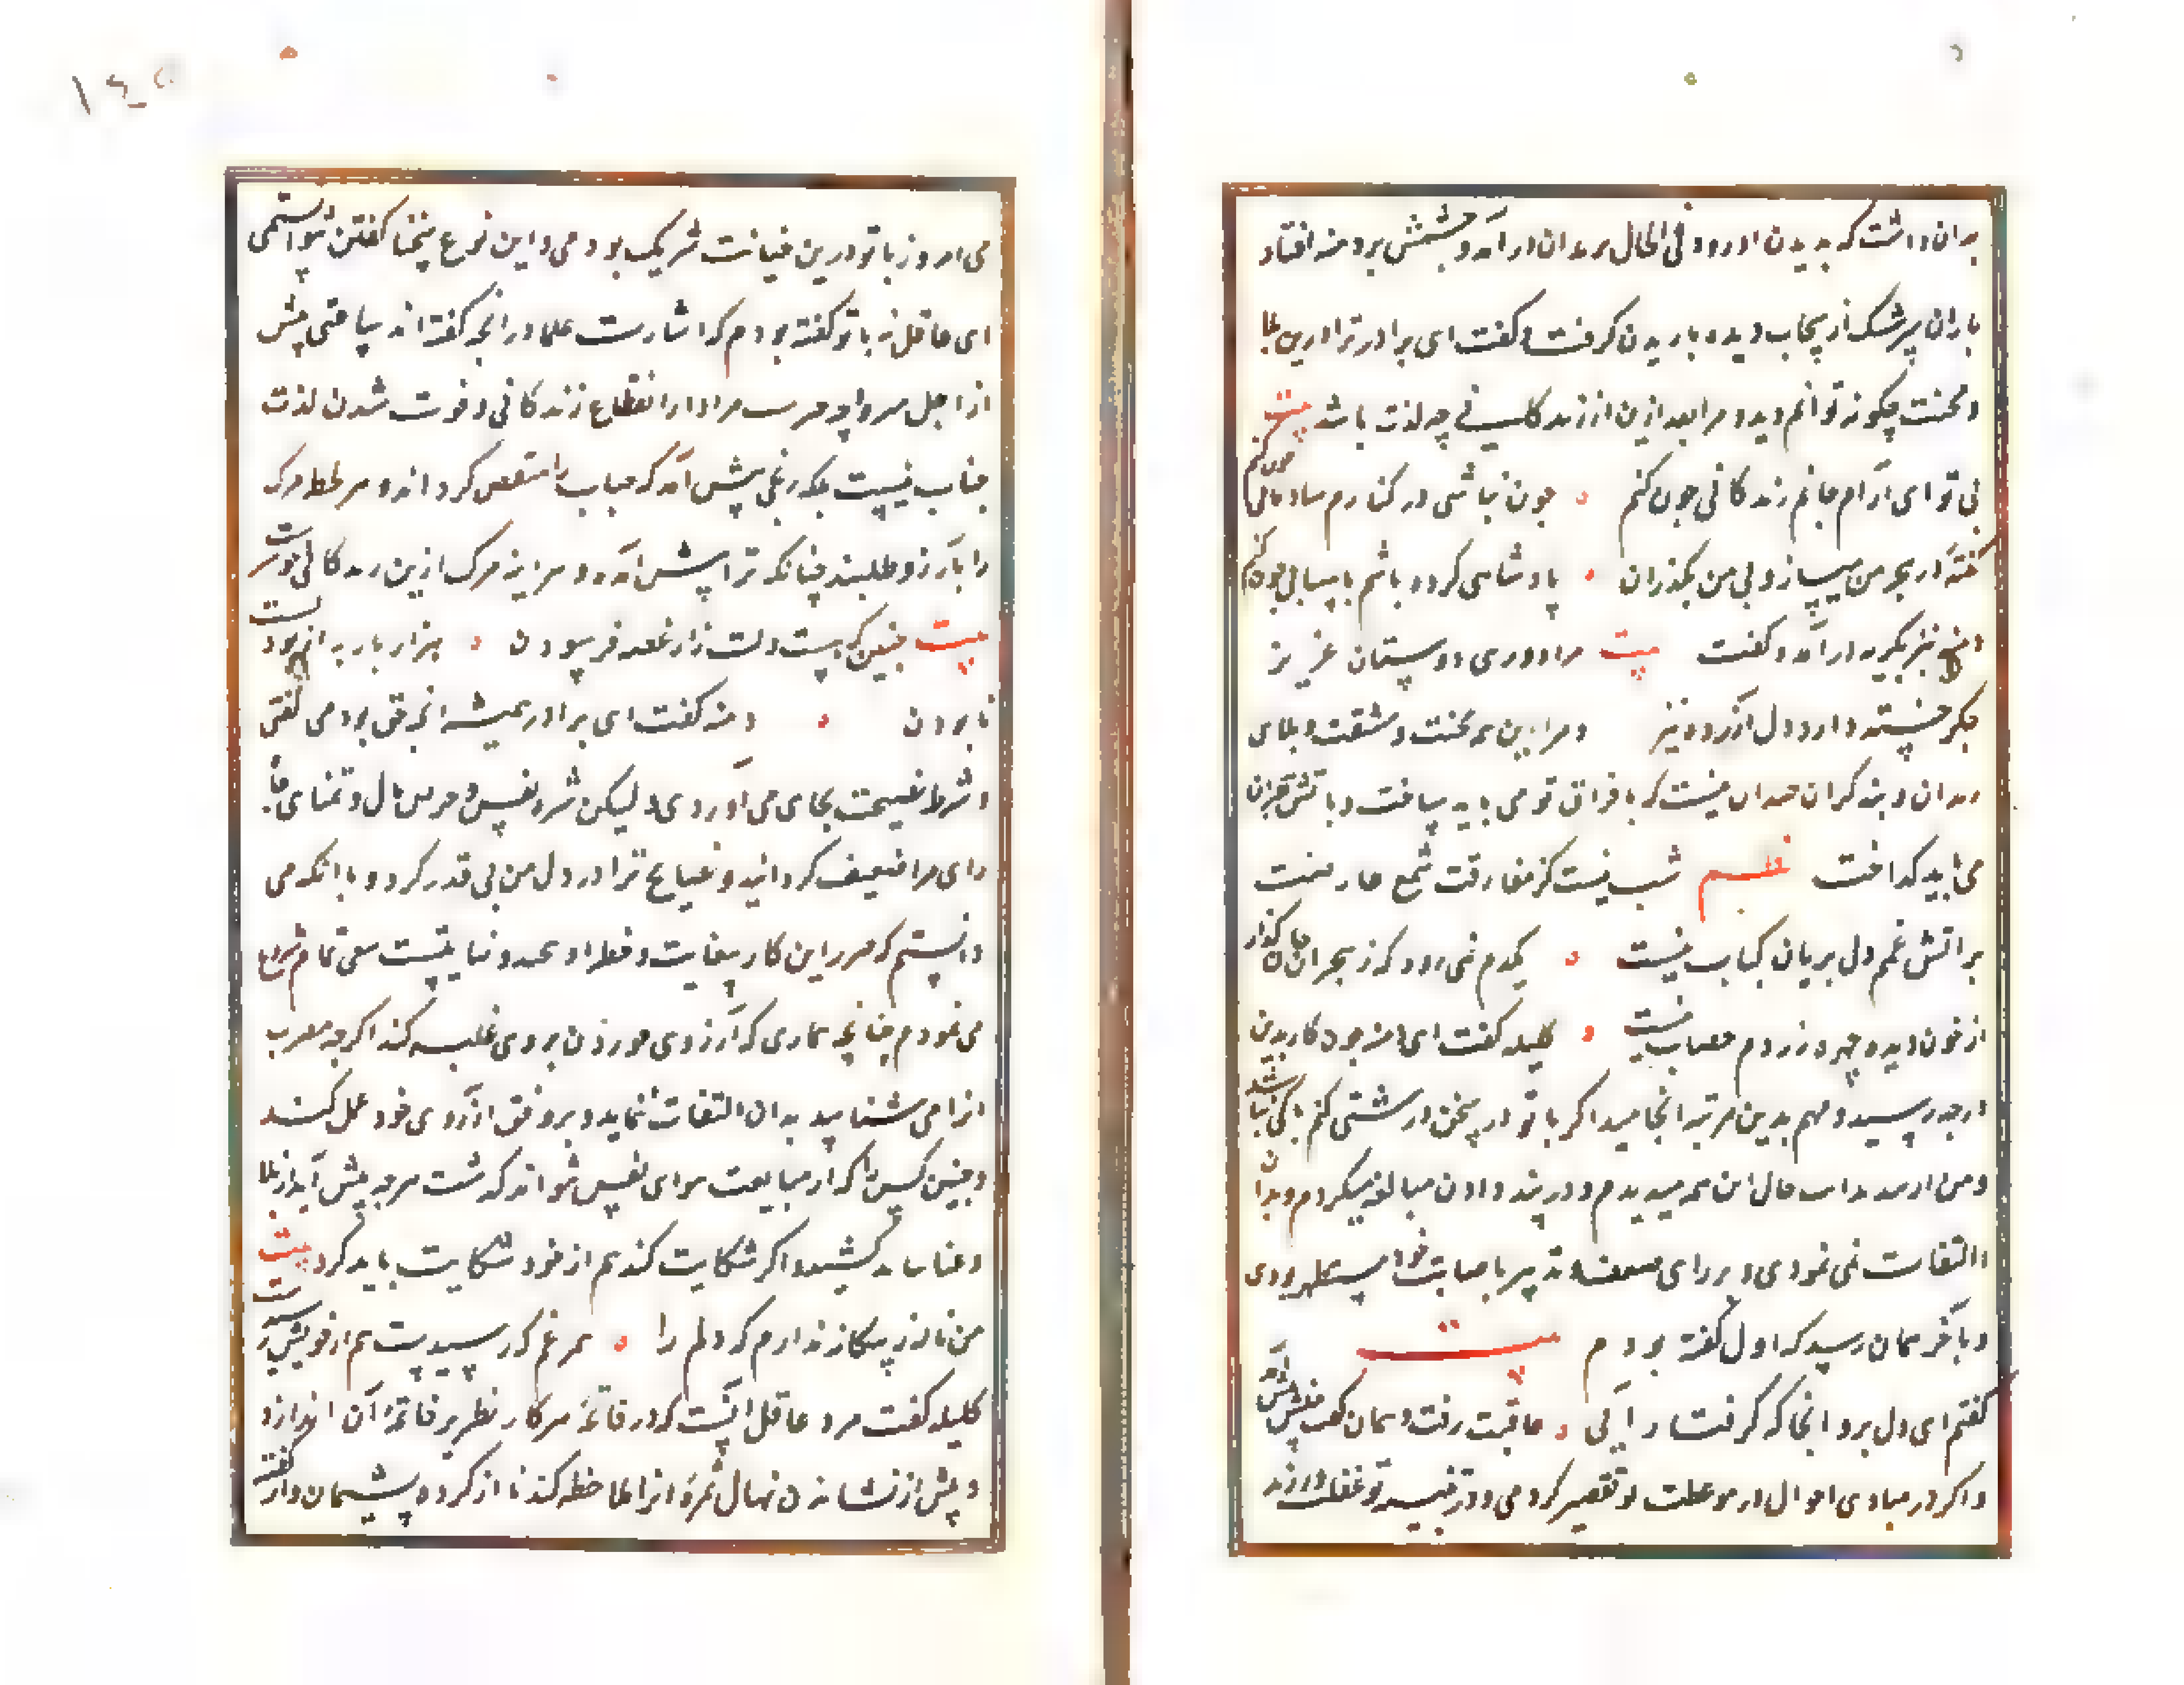 بدان داشت که بدیدن او رود فی الحال بزندان درآمد و چشمش بر دمنه افتاد
باران سرشک از سحاب دیده باریدن گرفت و گفت ای برادر ترا درین بلا
و محنت چگونه توانم دید و مرا بعد ازین از زندگانی چه لذت باشد بیت
بی تو ای آرام جانم زندگانی چون کنم ۰ چون نباشی در کنارم شادمانی چون کنم
گفته در هجر من میساز و بی من بگذران ۰ پادشاهی کرده باشم پاسبانی چون کنم
دمنه نیز بگریه درآمد و گفت بیت مرا دوری دوستان عزیز
جگر خسته دارد دل آزرده نیز و مرا این همه محنت و مشقت و بلای
زندان و بند گران چندان نیست که با فراق تو می باید ساخت و باتش هجران
می باید گداخت نظم شب نیست کز مفارقت شمع عارضت
بر اتش غم دل بریان کباب نیست ۰ یکدم نمی رود که ز هجران جان گداز
از خون دیده چهره زردم خضاب نیست ۰ کلیله گفت ای دمنه چون کار بدین
درجه رسید و مهم بدین مرتبه انجامید اگر با تو در سخن درشتی کنم باکی نباشد
و من از حال این همه میدیدم و در پند دادن مبالغه میکردم و بدان
التفات نمی نمودی و برای ضعیف و تدبیر ناصایب خود مستظهر بودی
و بآخر همان رسید که اول گفته بودم بیت
گفتم ای دل برو انجا که گرفتار آیی ۰ عاقبت رفت و همان گفت منش پیش آمد
و اگر در مبادی احوال در موعظت تو تقصیر کردمی و در تنبیه تو غفلت ورزیدمی
می امروز با تو درین خیانت شریک بودمی و این نوع سخنها گفتن نتوانستمی
ای غافل نه با تو گفته بودم که اشارت علما در آنچه گفته اند ساعی پیش
از اجل میرد چه مراد از انقطاع زندگانی و فوت شدن لذت
حیات نیست بلکه رنجی پیش آمد که حیات را منغص گرداند و هر لحظه مرگ
را بآرزو طلبند چنانکه ترا پیش آمده و هر آینه مرگ ازین زندگانی خوشتر است
بیت چنین که هست دلت زار غصه فرسودن ۰ هزار بار به از بودنست
نابودن ۰ دمنه گفت ای برادر همیشه انچه حق بود می گفتی
و شرط نصیحت بجای می آوردی ولیکن شره نفس و حرص مال و تمنای جاه
رای مرا ضعیف گردانید و نصایح ترا در دل من بی قدر کرد و با انکه می
دانستم که ضرر این کار بیغایت و خطر او بیحد و نهایتست سعی تمام شروع
می نمودم چنانچه بیماری که آرزوی خوردن بر وی غلبه کند اگر چه مضرت
انرا می شناسد بدان التفات ننماید و بر وفق آرزوی خود عمل کند
و چنین کس را که از متابعت هوای نفس نتواند گذشت هر چه پیش آید از بلا
و عنا بباید کشید و اگر شکایت کند هم از خود شکایت باید کرد بیت
من ناله ز بیگانه ندارم که دلم را ۰ هر غم که رسیدست هم از خویش رسیدست
کلیله گفت مرد عاقل آنست که در فاتحه هر کار نظر بر خاتمه آن اندازد
و پیش از نشاندن نهال ثمره انرا ملاحظه کند تا از کرده پشیمان و از گفته